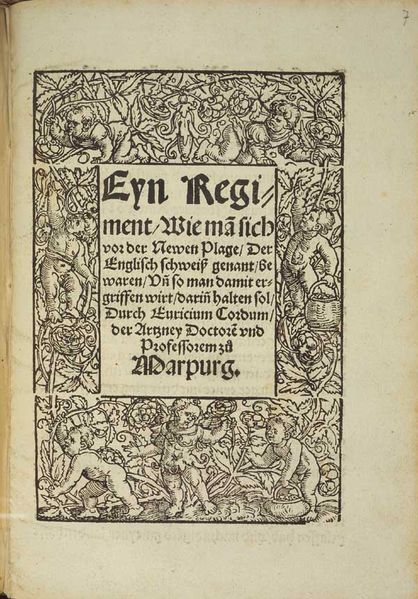 7
Eyn Regi⸗
ment / Wie mā sich
vor der Newen Plage / Der
Englisch schweiß genant / be
waren / Vñ so man damit er⸗
griffen wirt / dariñ halten sol /
Durch Euricium Cordum /
der Artzney Doctorē vnd
Professorem zů
Marpurg.